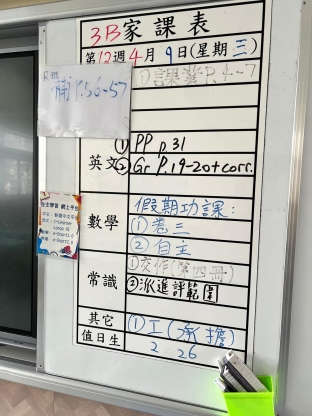 3B家課表
第12週4月9日(星期三)
P.56-57
P.4-7
① PP p.31
英文
② Gr P.19-20+corr.
假期功課:
數學
① 卷三
② 自主
①交作(第四冊)
常識
②派進評範圍
其它
① 工(承擔)
值日生
2 26